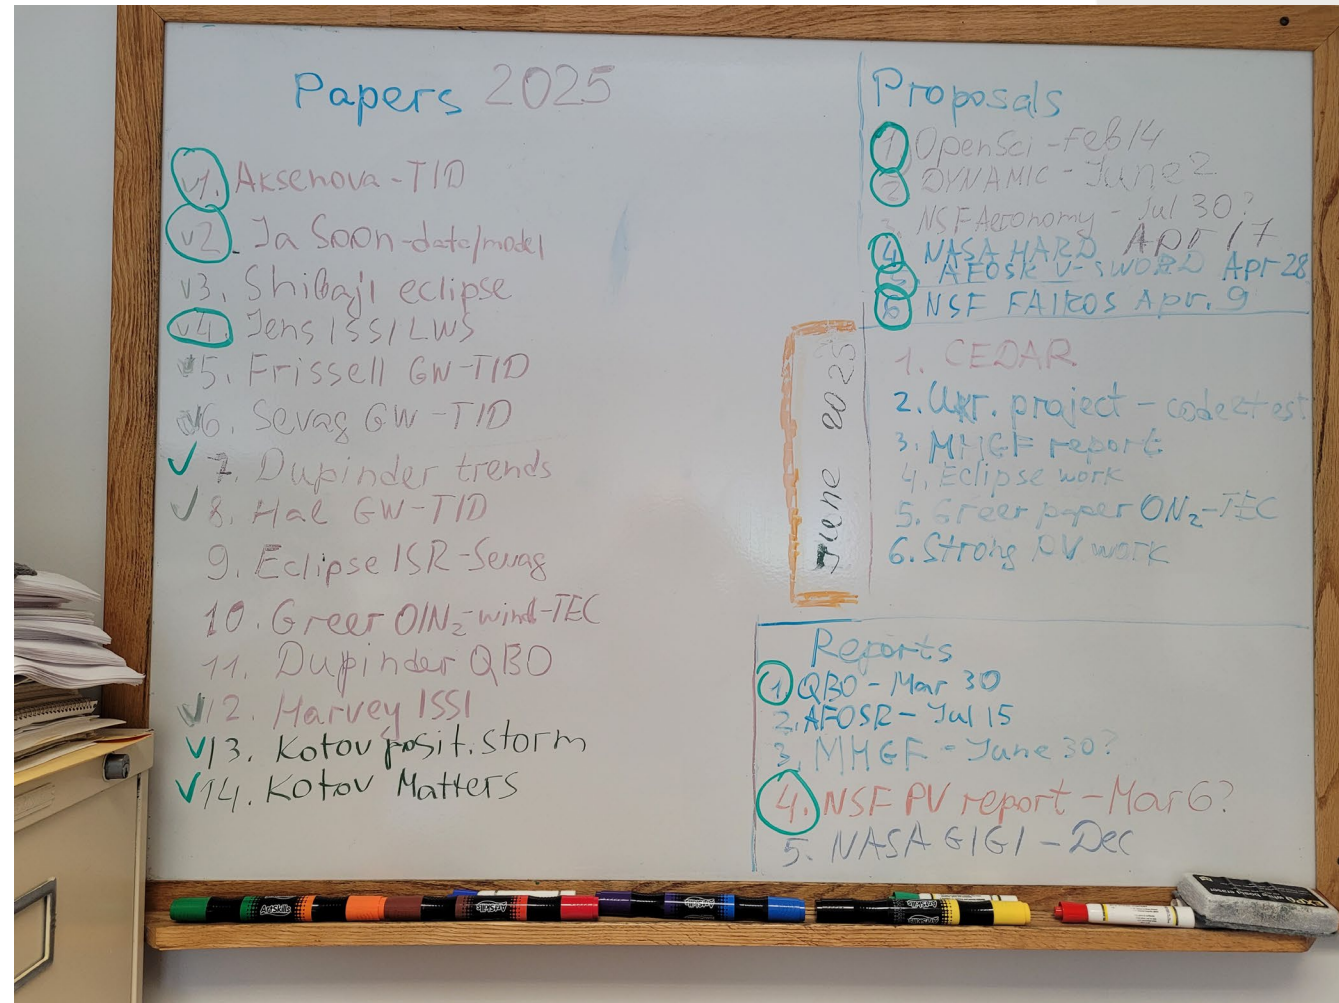 Papers 2025
v1. Aksenova-TID
v2. Ja Soon-data/model
v3. Shibaji eclipse
v4. Jens ISSI/LWS
v5. Frissell GW-TID
v6. Sevag GW-TID
✓ 7. Dupinder trends
✓ 8. Hal GW-TID
9. Eclipse ISR-Sevag
10. Greer O/N₂-wind-TEC
11. Dupinder QBO
✓12. Harvey ISSI
✓13. Kotov posit. storm
✓14. Kotov Matters
Proposals
1. OpenSci - Feb 14
2. DYNAMIC - June 2
3. NSF Aeronomy - Jul 30?
4. NASA HARD Apr 17
5. AFOSR V-SWORD Apr 28
6. NSF FAIROS Apr. 9
June 2025
1. CEDAR
2. Ukr. project - code+test
3. MHGF report
4. Eclipse work
5. Greer paper ON₂-TEC
6. Strong PV work
Reports
1. QBO - Mar 30
2. AFOSR - Jul 15
3. MHGF - June 30?
4. NSF PV report - Mar 6?
5. NASA GIGI - Dec
ArtSkills
ArtSkills
ArtSkills
ArtSkills
EXPO